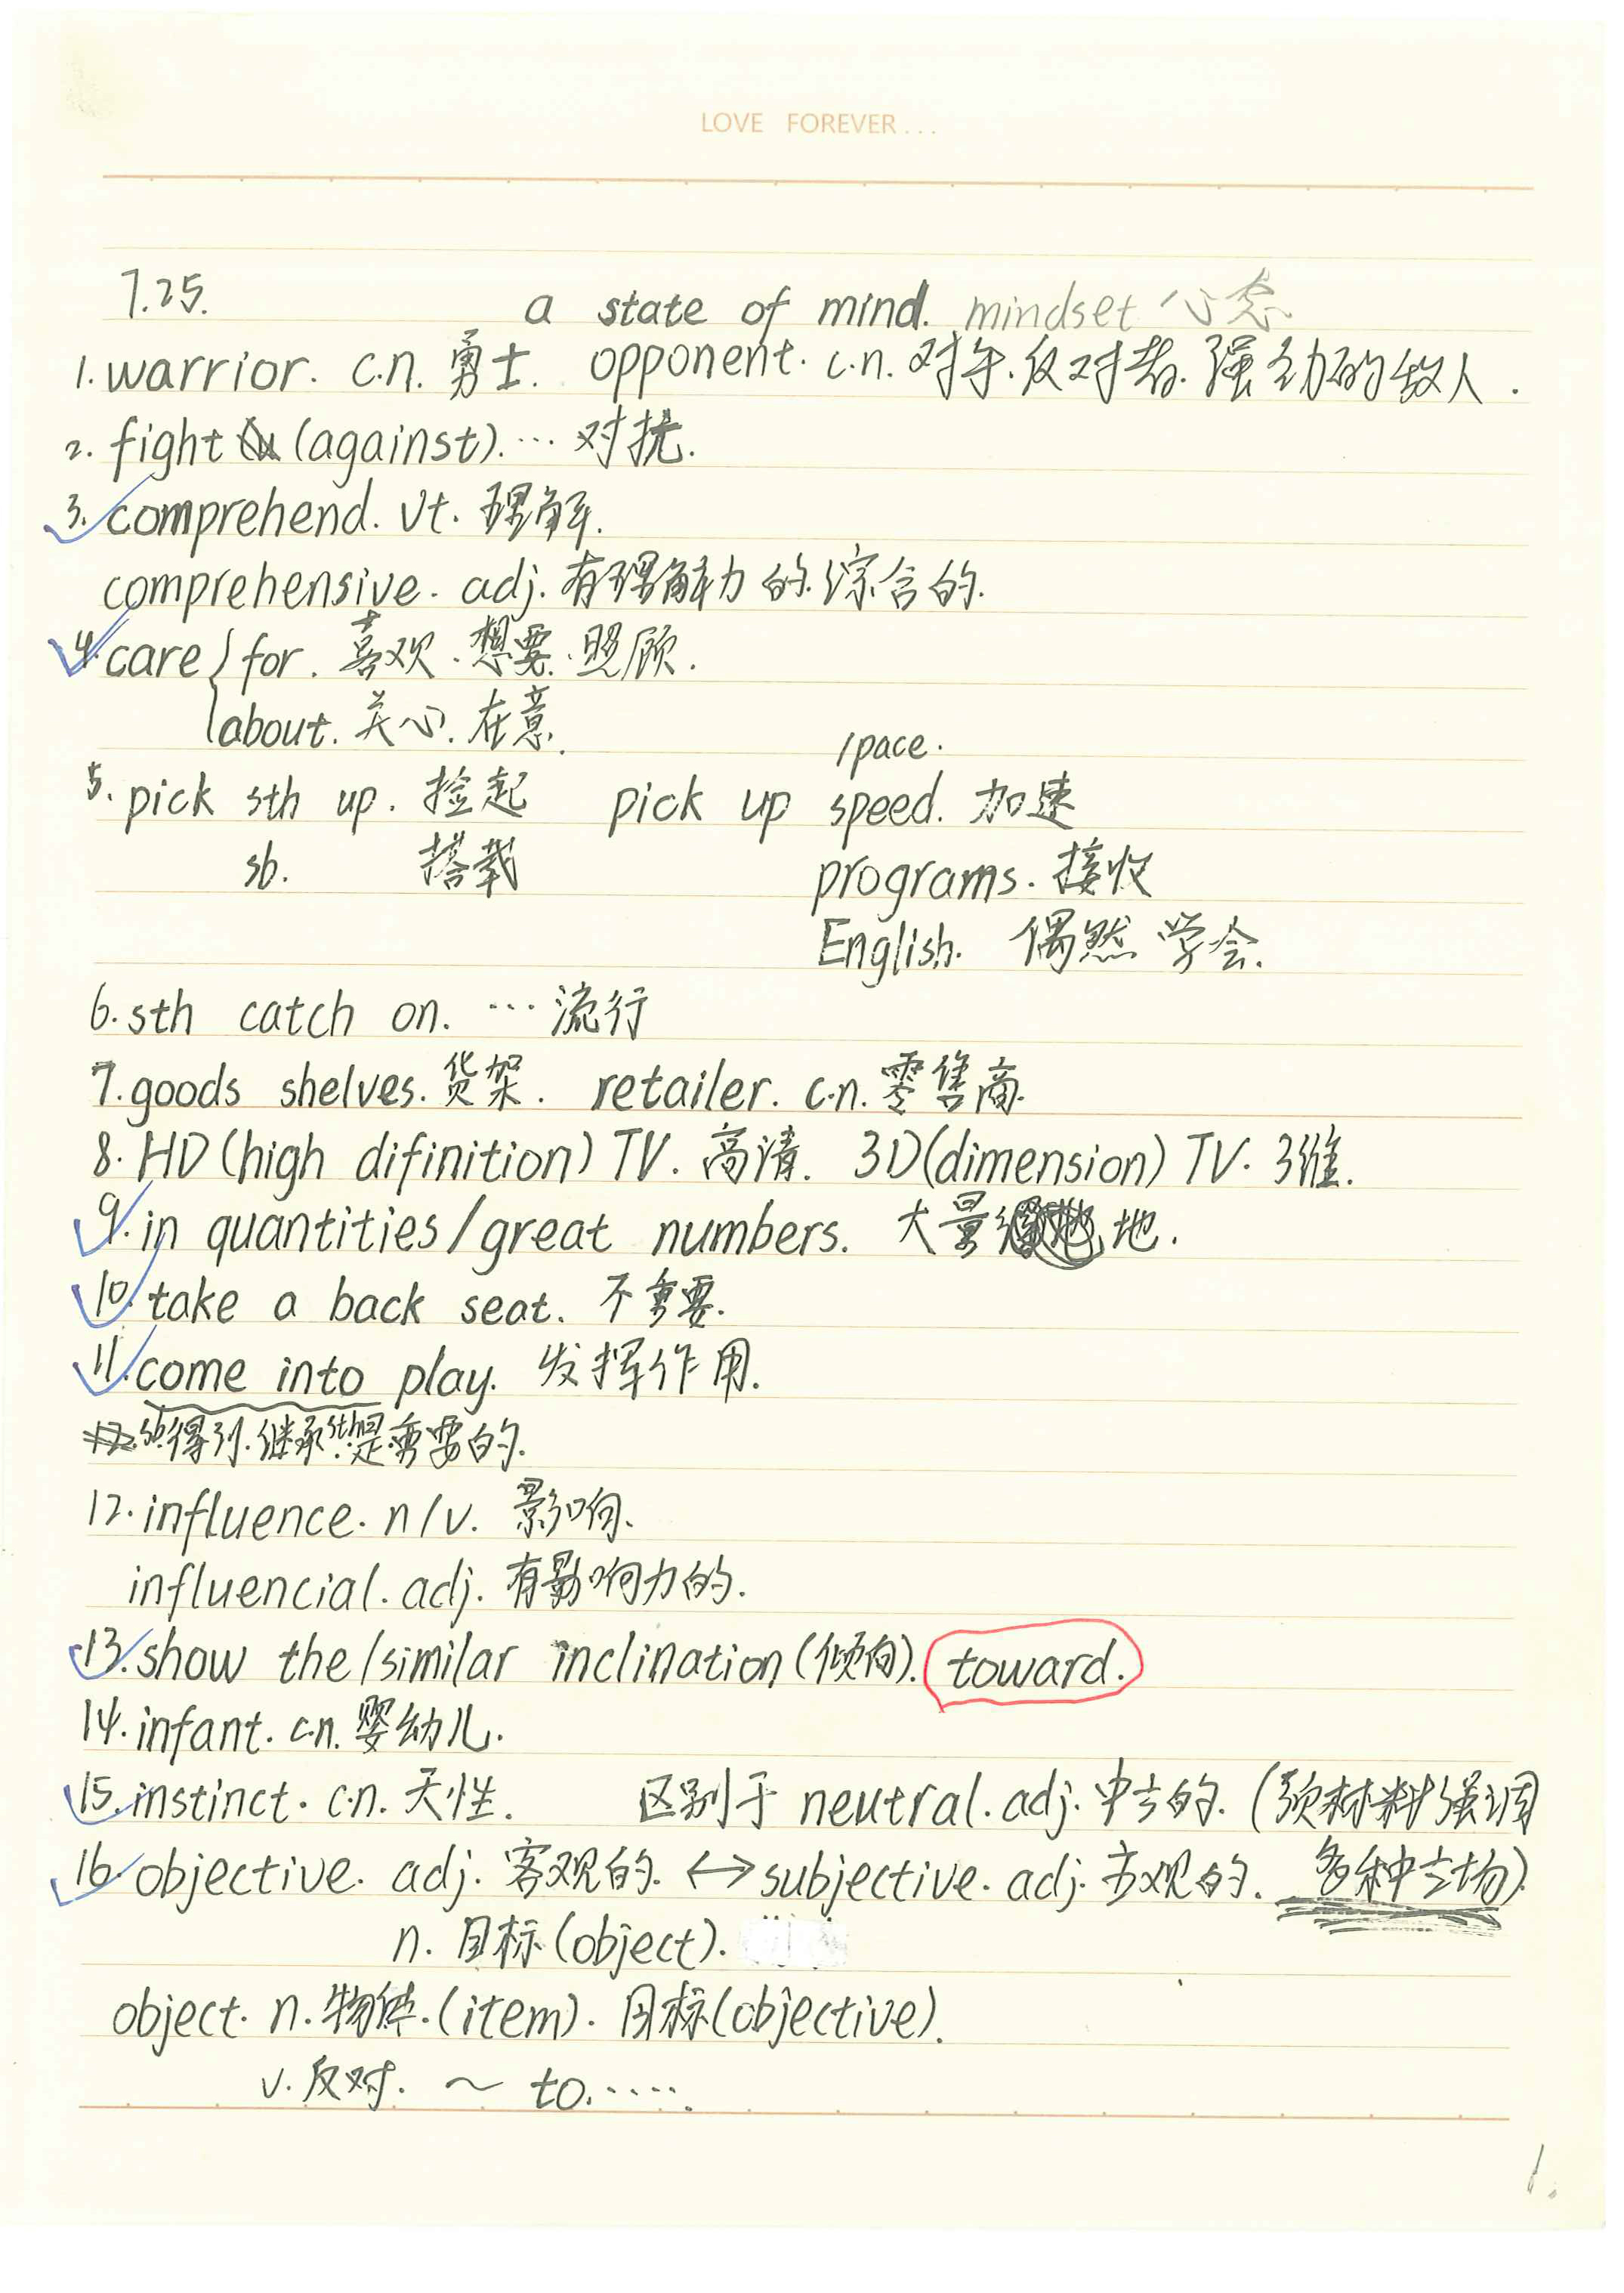 LOVE FOREVER...
7.25.
a state of mind. mindset 心态
1.warrior. c.n. 勇士. opponent. c.n. 对手.反对者.强劲的敌人.
2. fight (against). … 对抗.
3. comprehend. vt. 理解.
comprehensive. adj. 有理解力的.综合的.
4. care for. 喜欢.想要.照顾.
about. 关心.在意.
/pace.
5. pick sth up. 捡起 pick up speed. 加速
sb. 搭载 programs. 接收
English. 偶然 学会.
6. sth catch on. … 流行
7. goods shelves. 货架. retailer. c.n. 零售商.
8. HD (high difinition) TV. 高清. 3D(dimension) TV. 3维.
9. in quantities/great numbers. 大量地.
10. take a back seat. 不重要.
11. come into play. 发挥作用.
sb得到.继承sth是重要的.
12. influence. n/v. 影响.
influencial. adj. 有影响力的.
13. show the/similar inclination (倾向). toward.
14. infant. c.n. 婴幼儿.
15. instinct. c.n. 天性. 区别于 neutral. adj. 中立的. (须材料强调
16. objective. adj. 客观的. ↔ subjective. adj. 主观的. 多种立场)
n. 目标 (object).
object. n. 物体. (item). 目标 (objective).
v. 反对. ~ to. ....
1.